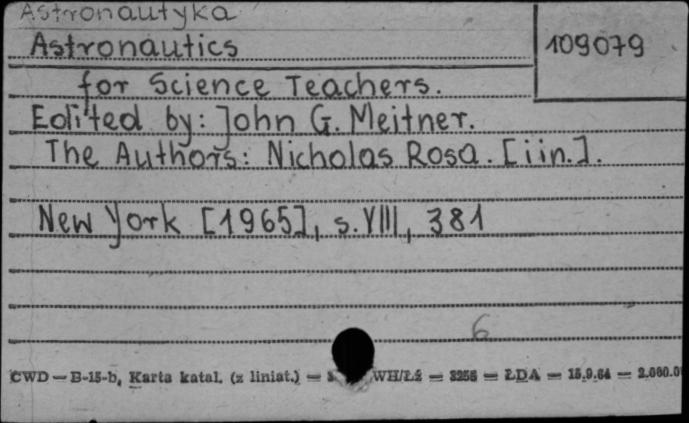 Astronautyka
Astronautics
109079
for Science Teachers.
Edited by: John G. Meitner.
The Authors: Nicholas Rosa. [i in.].
New York [1965], s. VIII, 381
6
CWD — B-15-b, Karta katal. (z liniat.) — WH/Łź — 3256 — ŁDA — 15.9.64 — 2.000.0